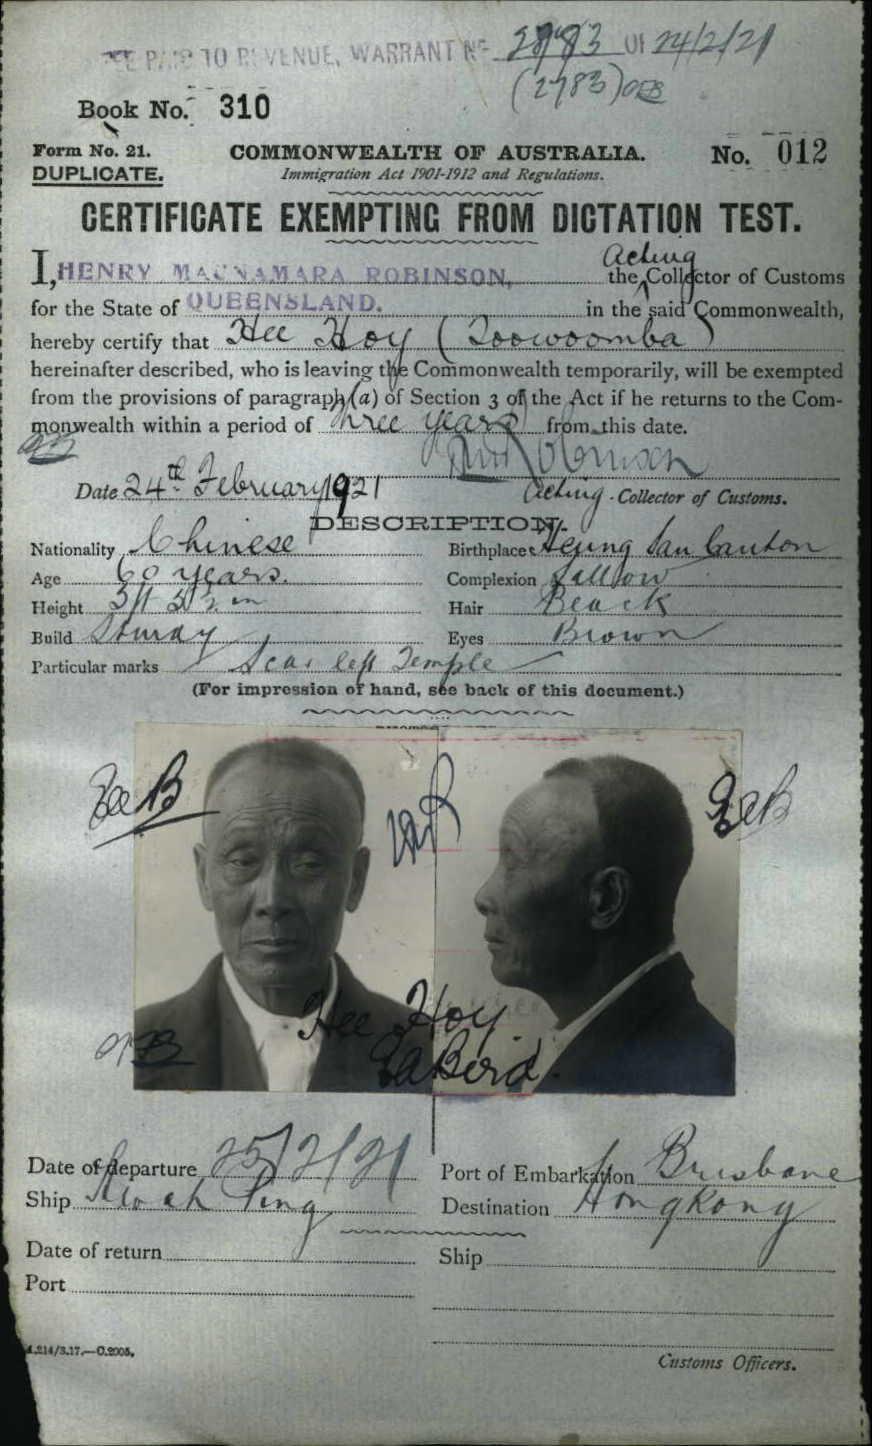 FEE PAID TO REVENUE, WARRANT No 2783 OF 24/2/21
(2783)
Book No. 310
Form No. 21. COMMONWEALTH OF AUSTRALIA. No. 012
DUPLICATE. Immigration Act 1901-1912 and Regulations.
CERTIFICATE EXEMPTING FROM DICTATION TEST.
I, HENRY MACNAMARA ROBINSON, the Acting Collector of Customs
for the State of QUEENSLAND. in the said Commonwealth,
hereby certify that Hee Hoy (Toowoomba)
hereinafter described, who is leaving the Commonwealth temporarily, will be exempted
from the provisions of paragraph (a) of Section 3 of the Act if he returns to the Com-
monwealth within a period of three years from this date.
Date 24th February 1921 Acting Collector of Customs.
DESCRIPTION.
Nationality Chinese Birthplace Heung San Canton
Age 60 years. Complexion Sallow
Height 5ft 5½ in Hair Black
Build Sturdy Eyes Brown
Particular marks Scar left Temple
(For impression of hand, see back of this document.)
HMR
Hee Hoy
Date of departure 25/2/21 Port of Embarkation Brisbane
Ship Hwah Ping Destination Hongkong
Date of return Ship
Port
Customs Officers.